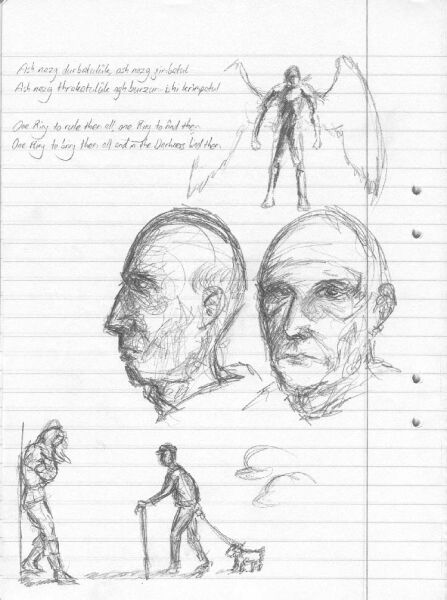 Ash nazg durbatulûk, ash nazg gimbatul
Ash nazg thrakatulûk agh burzum-ishi krimpatul
One Ring to rule them all, one Ring to find them
One Ring to bring them all and in the Darkness bind them